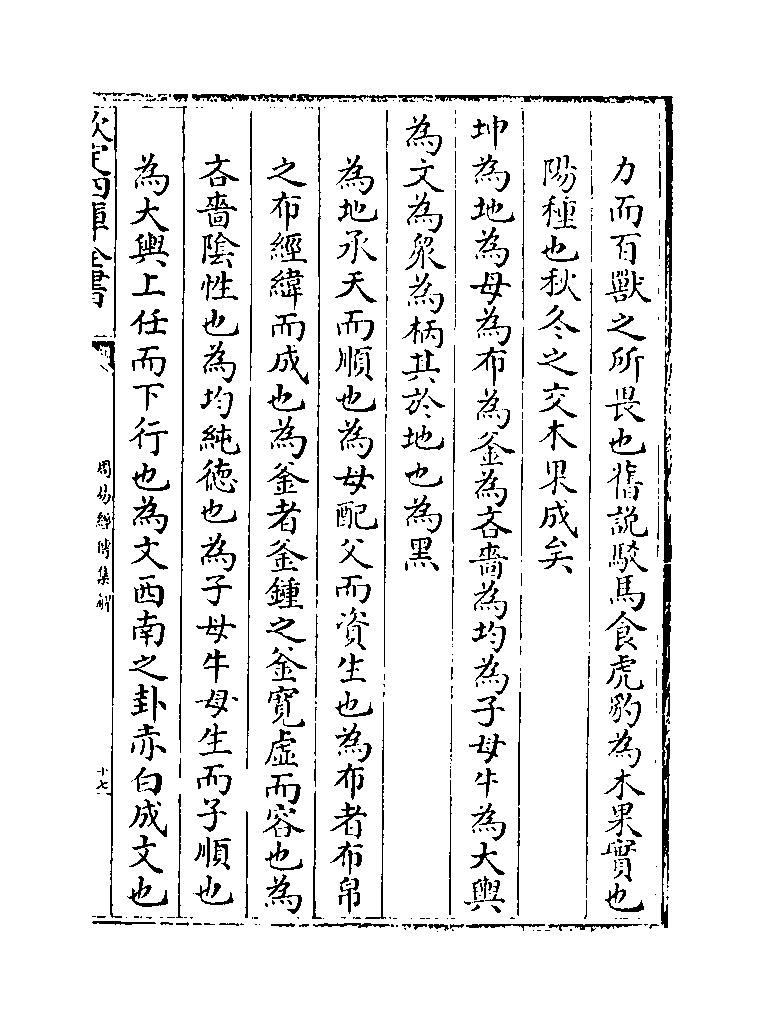 力而百獸之所畏也舊說駮馬食虎豹為木果實也
陽種也秋冬之交木果成矣
坤為地為母為布為釜為吝嗇為均為子母牛為大輿
為文為衆為柄其於地也為黑
為地承天而順也為母配父而資生也為布者布帛
之布經緯而成也為釜者釜鍾之釜寛虛而容也為
吝嗇隂性也為均純德也為子母牛母生而子順也
為大輿上任而下行也為文西南之卦赤白成文也
欽定四庫全書
周易經傳集解
十七